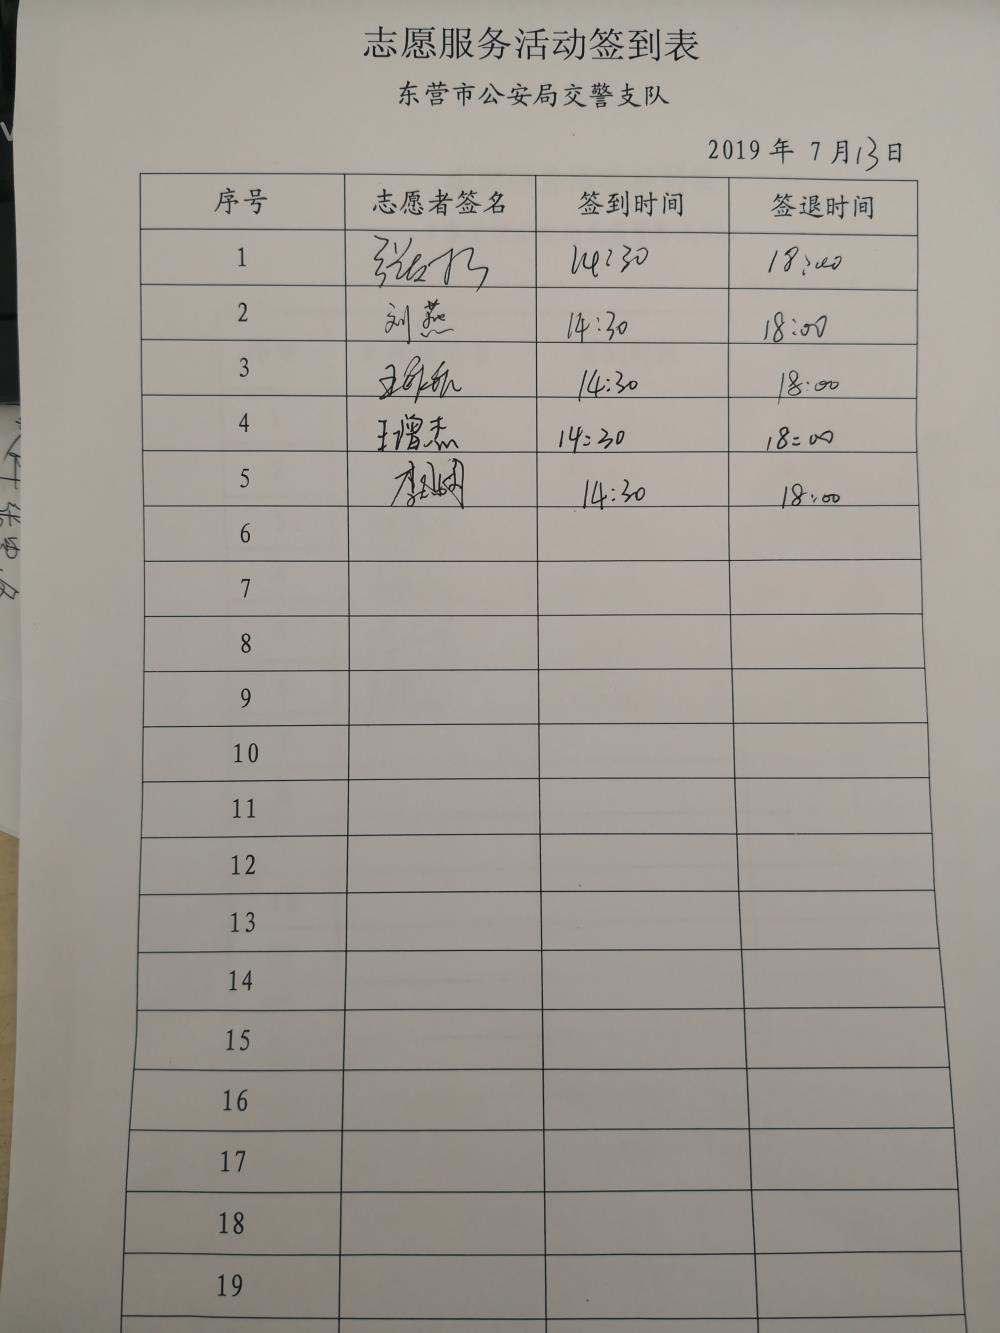 志愿服务活动签到表
东营市公安局交警支队
2019 年 7 月13日
序号 志愿者签名 签到时间 签退时间
1 14:30 18:00
2 刘燕 14:30 18:00
3 14:30 18:00
4 王增杰 14:30 18:00
5 14:30 18:00
6
7
8
9
10
11
12
13
14
15
16
17
18
19